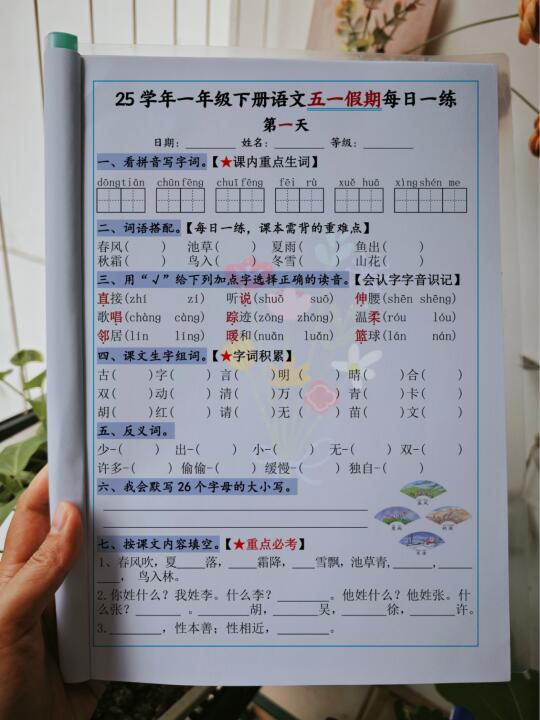 25学年一年级下册语文五一假期每日一练
第一天
日期：________ 姓名：________ 等级：________
一、看拼音写字词。【★课内重点生词】
dōng tiān chūn fēng chuī fēng fēi rù xuě huā xìng shén me
二、词语搭配。【每日一练，课本需背的重难点】
春风( ) 池草( ) 夏雨( ) 鱼出( )
秋霜( ) 鸟入( ) 冬雪( ) 山花( )
三、用“√”给下列加点字选择正确的读音。【会认字字音识记】
直接(zhí zí) 听说(shuō suō) 伸腰(shēn shēng)
歌唱(chàng càng) 踪迹(zōng zhōng) 温柔(róu lóu)
邻居(lín líng) 暖和(nuǎn luǎn) 篮球(lán nán)
四、课文生字组词。【★字词积累】
古( ) 字( ) 言( ) 明( ) 晴( ) 合( )
双( ) 动( ) 清( ) 万( ) 青( ) 卡( )
胡( ) 红( ) 请( ) 无( ) 苗( ) 文( )
五、反义词。
少-( ) 出-( ) 小-( ) 无-( ) 双-( )
许多-( ) 偷偷-( ) 缓慢-( ) 独自-( )
六、我会默写26个字母的大小写。
七、按课文内容填空。【★重点必考】
1、春风吹，夏____落，____霜降，___雪飘，池草青，______，______
______，鸟入林。
2.你姓什么？我姓李。什么李？______。他姓什么？他姓张。什
么张？______。______胡，______吴，______徐，______许。
3.________，性本善；性相近，________。